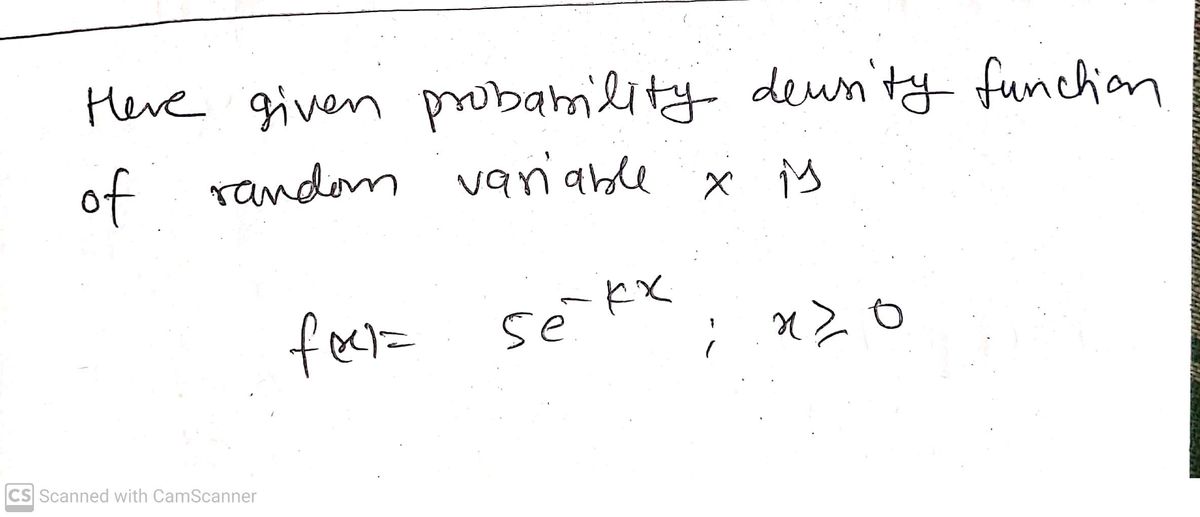 Here given probability density function
of random variable x is
f(x) = 5e^{-kx} ; x ≥ 0
CS Scanned with CamScanner